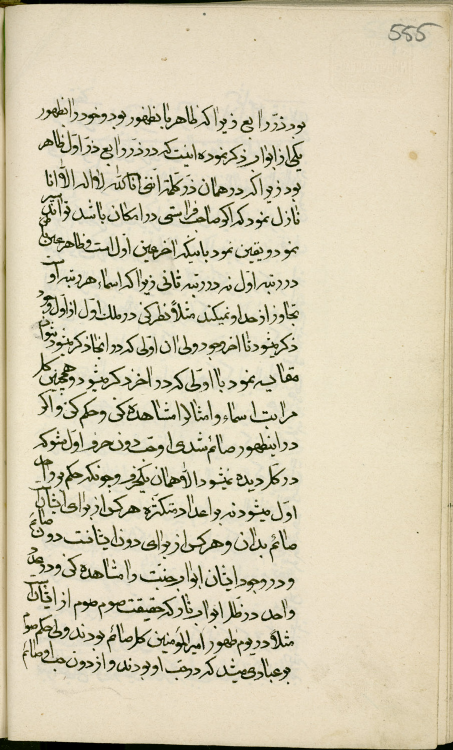 555
بود در رابع زیرا که ظاهر بان ظهور بود و خود را بظهور
یکی از ابواب ذکر نموده اینست که در ذر رابع ذر اول ظاهر
بود زیرا که در همان ذر کلمه اننی انا الله لا اله الا انا
نازل نمود که اگر صاحب فراستی در امکان باشد تواند
نمود و یقین نمود باینکه اخر عین اول است و ظاهر عین
در رتبه اول نه در رتبه ثانی زیرا که اسماء هر رتبه از
تجاوز از حد او نمیکند مثلا نظر کن در ملک اول از اول
ذکر میشود تا اخر وجود ولی ان اولی که در انجا ذکر میشود
مقابسه نمود با اولی که در اخر ذکر میشود و همچنین کل
مراتب اسماء و امثال را مشاهده کن و حکم کن و اگر
در این ظهور صائم شدی اوقت دون حرف اول میشود که
در کل دیده نمیشود الا همان یکی و چونکه حکم بر واحد
اول میشود نه بر اعداد متکثره هر کس از برای ایشان
صائم بدان و هر کس از برای دون ایشانست دون صائم
و در وجود ایشان ابواب جنت را مشاهده کن و در
واحد در ظل ابواب نار که حقیقت صوم صوم از ایشان
مثلا در یوم ظهور امیر المومنین کل صائم بودند ولی حکم صوم
بر عبادی میشد که در حب او بودند و از دون حب او صائم